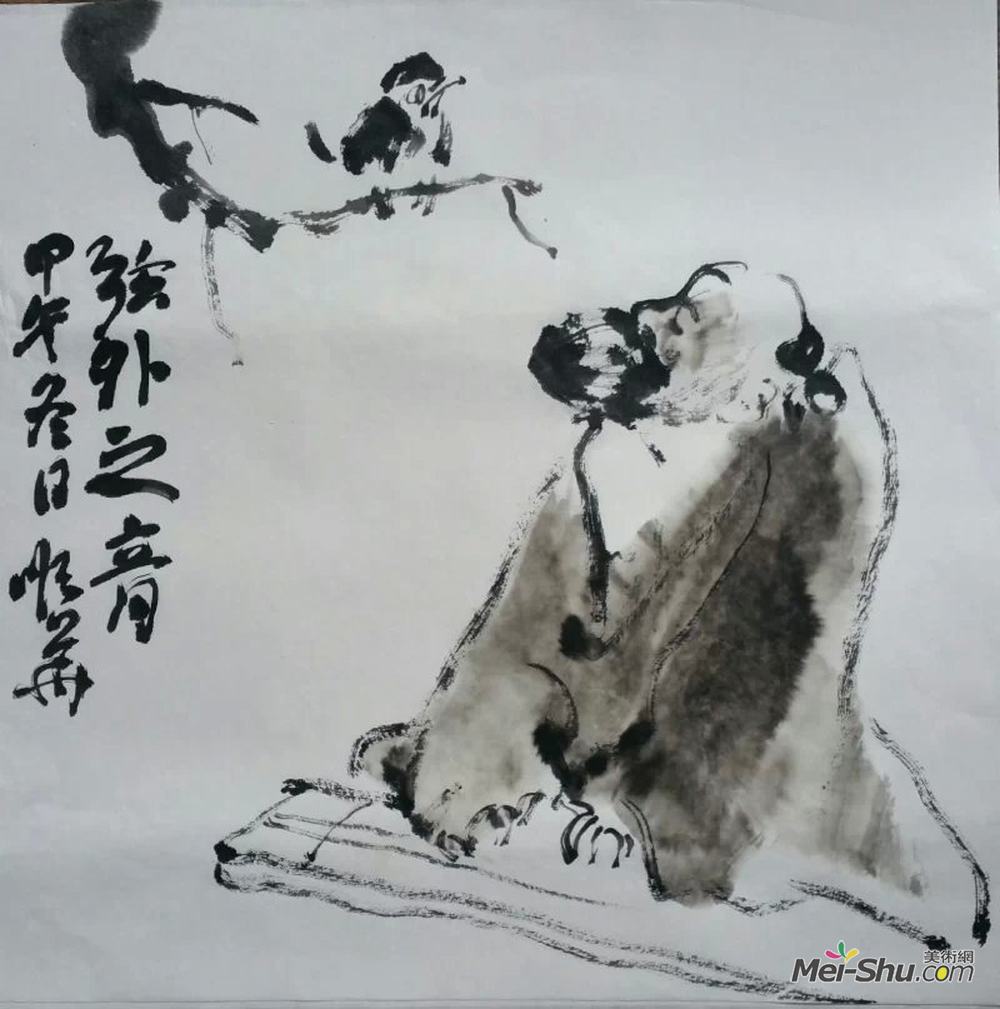 弦外之音
甲午冬日 顺华
美術網
Mei-Shu.com